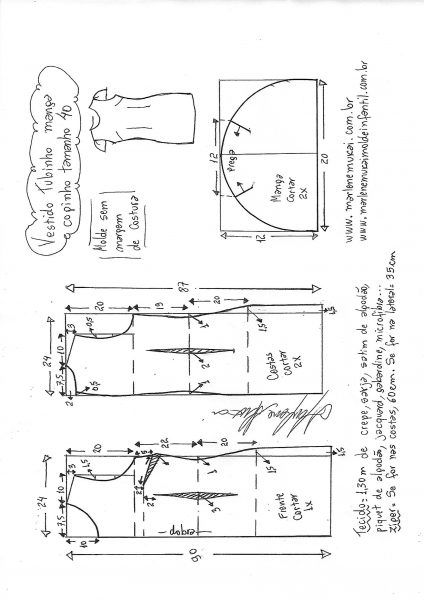 Vestido Tubinho manga
copinho tamanho 40
Molde sem
margem
de Costura
12
Prega
Manga
Cortar
2x
12
20
www.marlenemukai.com.br
www.marlenemukaimoldeinfantil.com.br
87
20
19
20
24
10
3
0,5
7,5
2
0,5
1
2
1
1,5
1,5
Costas
cortar
2x
90
20
22
20
24
10
3
1,5
7,5
10
5
2
3
1
1,5
1,5
dobra
Frente
Cortar
1x
Tecido: 1,30 m de crepe, sarja, satim de algodão,
piquet de algodão, jacquard, gabardine, microfibra...
Zíper. Se for nas costas, 60cm. Se for na lateral= 35cm